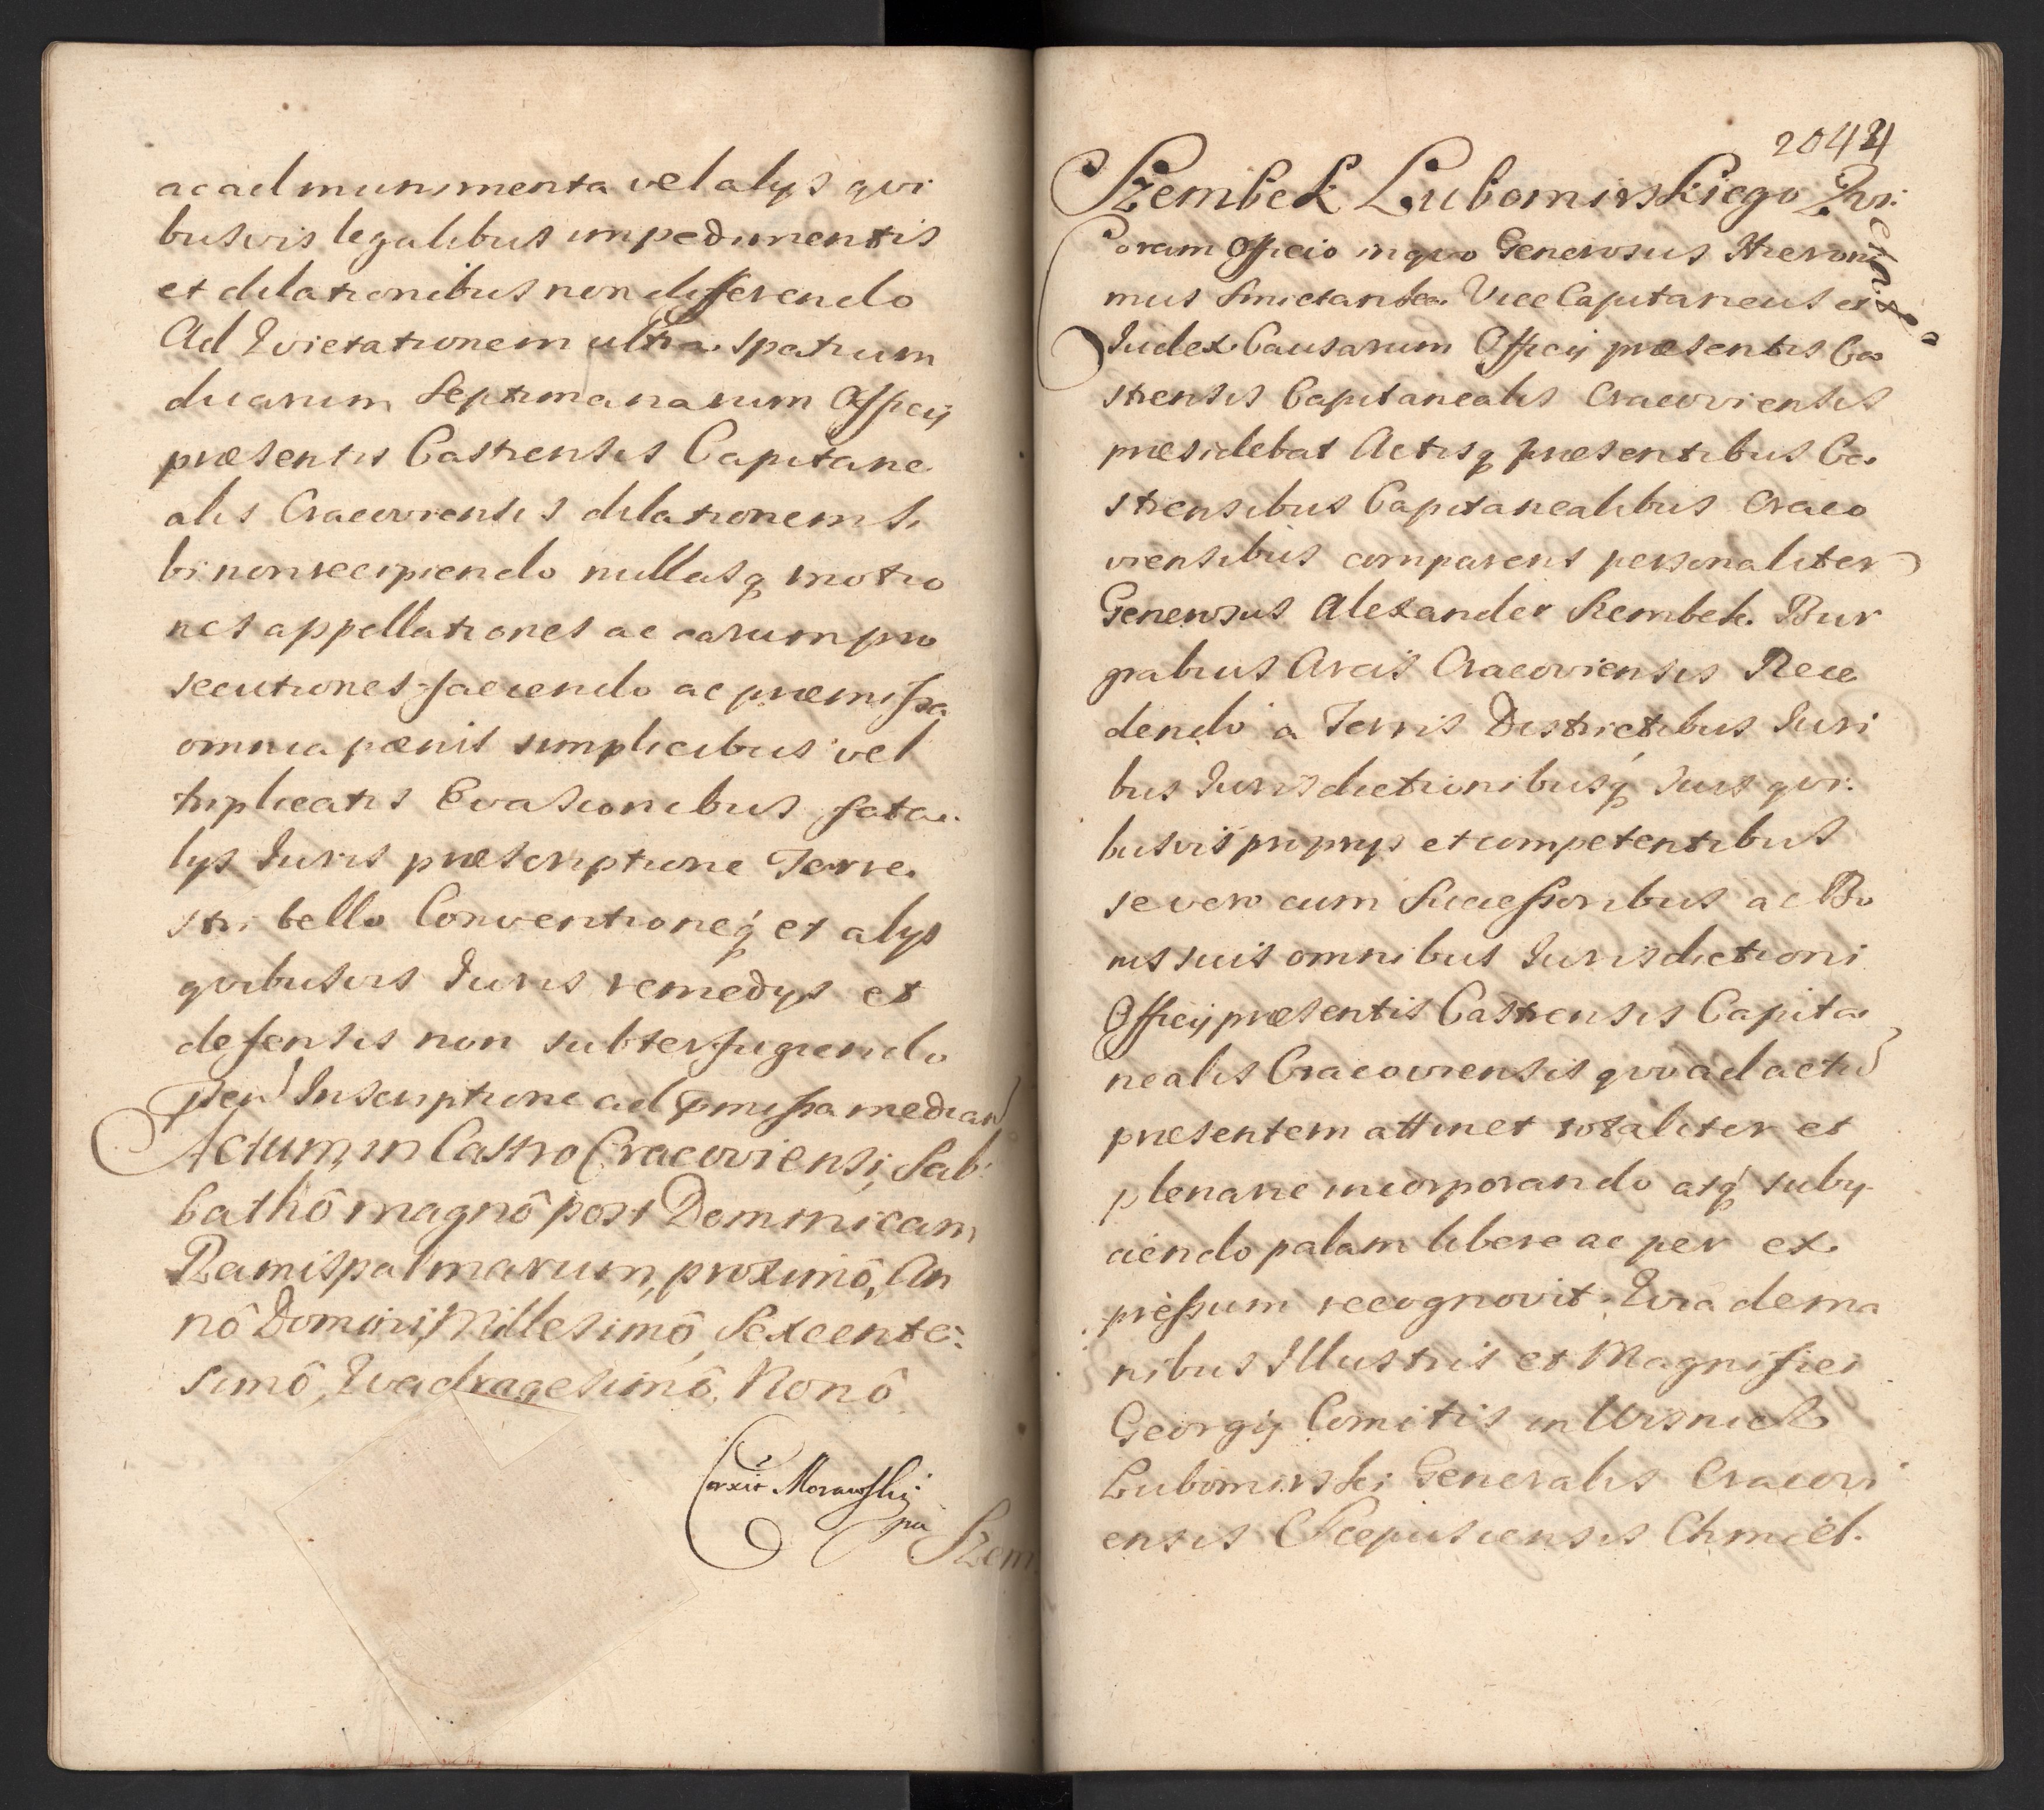 ac ad munimenta vel alys qvi
busvis legalibus impedimentis
et dilationibus non differendo
Ad Qvietationem ultra spatium
duarum Septimanarum Officij
præsentis Castrensis Capitane
alis Cracoviensis dilationem si
bi non recipiendo nullasq motio
nes appellationes ac earum pro
secutiones faciendo ac præmissa
omnia pænis simplicibus vel
triplicatis Evasionibus fata
lys Iuris præscriptione Terre
stri bello Conventioneq et alys
qvibusvis Iuris remedys et
defensis non subterfugiendo
Inscriptione ad pmissa median
Actum in Castro Cracoviensi, Sab:
bathô magnô post Dominicam
Ramispalmarum, proximô, An
nô Domini, Millesimô, Sexcente:
simô, Qvadragesimô, Nonô
Corxit Morawskij
Szem
2044
Szembek Lubomirskiego Qvi:
Coram Officio in quo Generosus Hieroni
mus Smietanka Vice Capitaneus et
Iudex Causarum Officij præsentis Ca
strensis Capitanealis Cracoviensis
præsidebat Actisq præsentibus Ca
strensibus Capitanealibus Craco
viensibus comparens personaliter
Generosus Alexander Szembek Bur
grabius Arcis Cracoviensis Rece
dendo a Terris Districtibus Iuri
bus Iurisdictionibusq suis qvi:
busvis proprys et competentibus
se vero cum Successoribus ac Bo
nis suis omnibus Iurisdictioni
Officij præsentis Castrensis Capita
nealis Cracoviensis qvo ad actū
præsentem attinet totaliter et
plenarie incorporando atq suby
ciendo palam libere ac per ex
pressum recognovit. Qvia de ma
nibus Illustris et Magnifici
Georgij Comitis in Wisnicz
Lubomirski Generalis Cracovi
ensis Scepusiensis Chmiel.